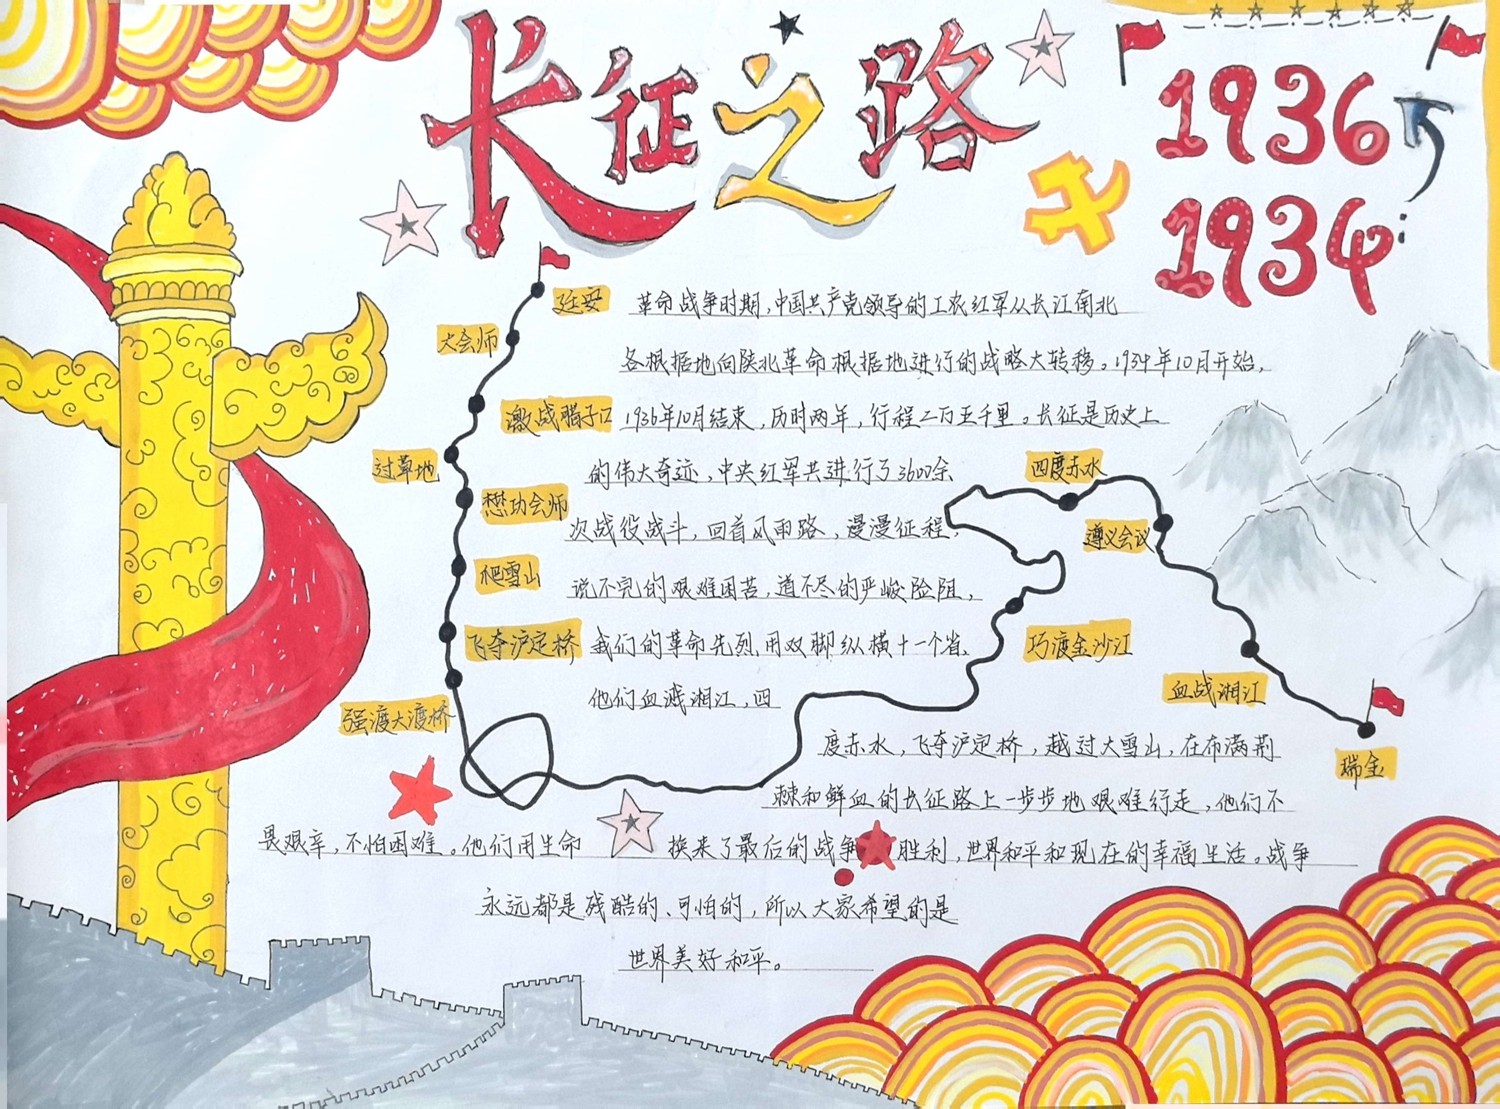 长征之路
1936
1934
延安
大会师
激战腊子口
过草地
懋功会师
爬雪山
飞夺泸定桥
强渡大渡桥
四度赤水
遵义会议
巧渡金沙江
血战湘江
瑞金
革命战争时期,中国共产党领导的工农红军从长江南北
各根据地向陕北革命根据地进行的战略大转移。1934年10月开始,
1936年10月结束,历时两年,行程二万五千里。长征是历史上
的伟大奇迹,中央红军共进行了3600余
次战役战斗,回首风雨路,漫漫征程,
说不完的艰难困苦,道不尽的严峻险阻,
我们的革命先烈用双脚纵横十一个省、
他们血溅湘江,四
度赤水,飞夺泸定桥,越过大雪山,在布满荆
棘和鲜血的长征路上一步步地艰难行走,他们不
畏艰辛,不怕困难。他们用生命换来了最后的战争胜利,世界和平和现在的幸福生活。战争
永远都是残酷的、可怕的,所以大家希望的是
世界美好和平。